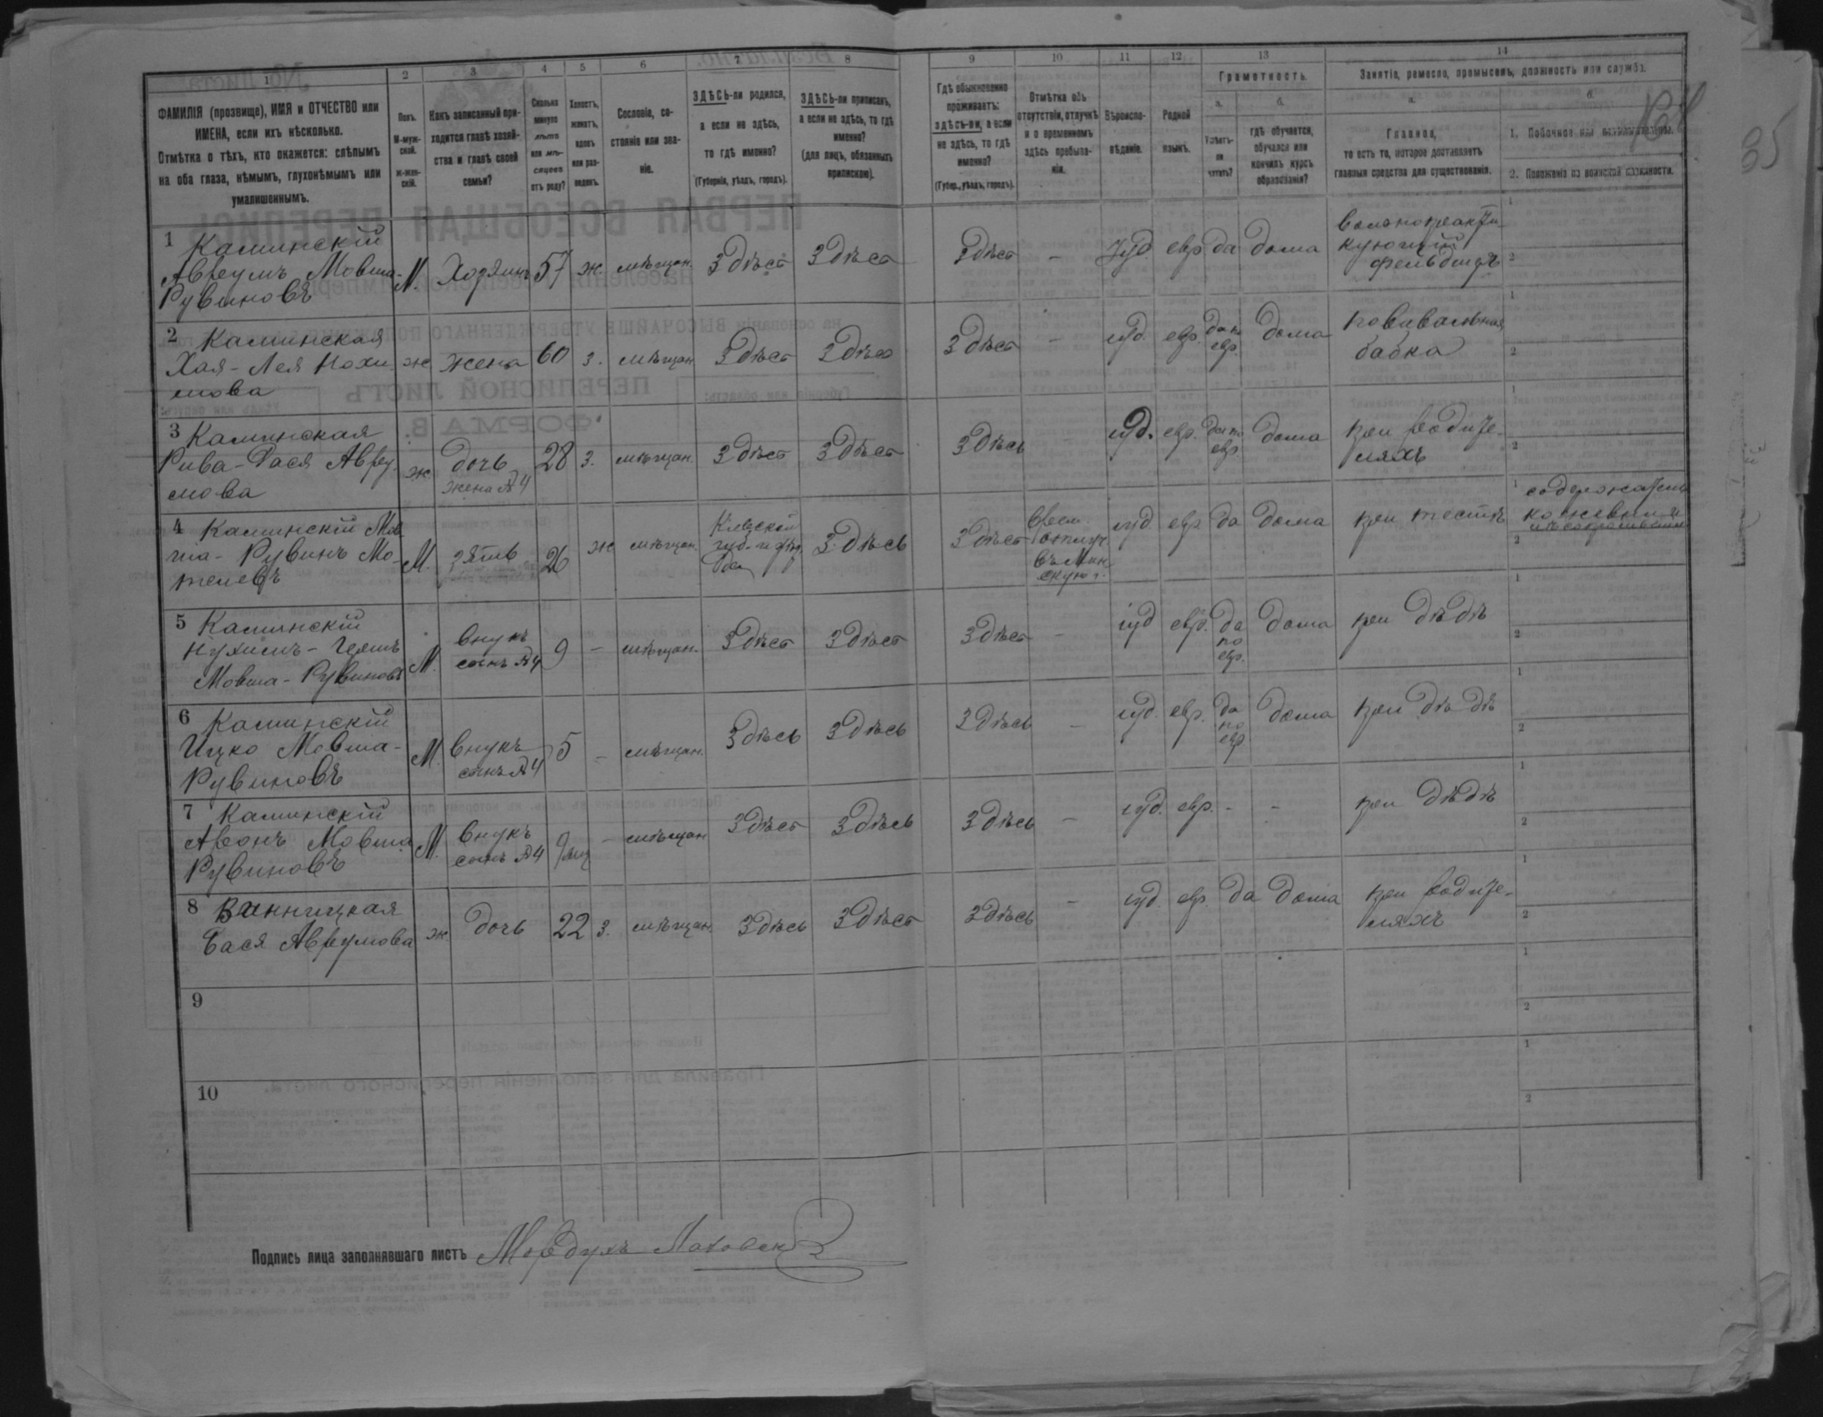 1 2 3 4 5 6 7 8 9 10 11 12 13 14
ФАМИЛІЯ (прозвище), ИМЯ и ОТЧЕСТВО или
ИМЕНА, если ихъ нѣсколько.
Отмѣтка о тѣхъ, кто окажется: слѣпымъ
на оба глаза, нѣмымъ, глухонѣмымъ или
умалишеннымъ.
Полъ.
М-муж-
ской.
Ж-жен-
скій.
Какъ записанный при-
ходится главѣ хозяй-
ства и главѣ своей
семьи?
Сколько
минуло
лѣтъ
или мѣ-
сяцевъ
отъ роду?
Холостъ,
женатъ,
вдовъ
или раз-
веденъ.
Сословіе, со-
стояніе или зва-
ніе.
ЗДѢСЬ-ли родился,
а если не здѣсь,
то гдѣ именно?
(Губернія, уѣздъ, городъ).
ЗДѢСЬ-ли приписанъ,
а если не здѣсь, то гдѣ
именно?
(для лицъ, обязанныхъ
припискою).
Гдѣ обыкновенно
проживаетъ:
здѣсь-ли, а если
не здѣсь, то гдѣ
именно?
(Губер., уѣздъ, городъ).
Отмѣтка объ
отсутствіи, отлучкѣ
и о временномъ
здѣсь пребыва-
ніи.
Вѣроиспо-
вѣданіе.
Родной
языкъ.
Грамотность.
а.
Умѣетъ-
ли
читать?
б.
гдѣ обучается,
обучался или
кончилъ курсъ
образованія?
Занятіе, ремесло, промыселъ, должность или служба.
а.
Главное,
то есть то, которое доставляетъ
главныя средства для существованія.
б.
1. Побочное или вспомогательное.
2. Положеніе по воинской повинности.
35
1 Каминскій
Авреумъ Мовша-
Рувиновъ
М. Хозяинъ 57 ж мѣщан. Здѣсь Здѣсь Здѣсь - Іуд евр да дома
вольнопракти-
кующій
фельдшеръ
2 Каминская
Хая-Лея Нохи
мова
ж жена 60 з. мѣщан Здѣсь Здѣсь Здѣсь - іуд. евр. да по
евр.
дома
повивальная
бабка
3 Каминская
Рива-Дася Авре-
мова
ж дочь
жена №4
28 з. мѣщан. Здѣсь Здѣсь Здѣсь іуд. евр. да по
евр.
дома
при родите-
ляхъ
4 Каминскій Мов
ша-Рувинъ Мо-
телевъ
М. зять 26 ж мѣщан.
Кіевской
губ.
Здѣсь Здѣсь
въ Мин
скую г.
іуд евр да дома при тестѣ
содержатель
5 Каминскій
Нухимъ-
Мовша-Рувиновъ
М. внукъ
сынъ №4
9 - мѣщан. Здѣсь Здѣсь Здѣсь - іуд евр. да
по
евр.
дома при дѣдѣ
6 Каминскій
Ицко Мовша-
Рувиновъ
М. внукъ
сынъ №4
5 - мѣщан. Здѣсь Здѣсь Здѣсь - іуд. евр. да
по
евр
дома при дѣдѣ
7 Каминскій
Аронъ Мовша
Рувиновъ
М. внукъ
сынъ №4
9 мѣс - мѣщан Здѣсь Здѣсь Здѣсь - іуд. евр. - - при дѣдѣ
8 Винницкая
Бася Аврумова
ж. дочь 22 з. мѣщан. Здѣсь Здѣсь Здѣсь - іуд. евр. да дома
при родите-
ляхъ
9
10
Подпись лица заполнявшаго листъ Мордухъ